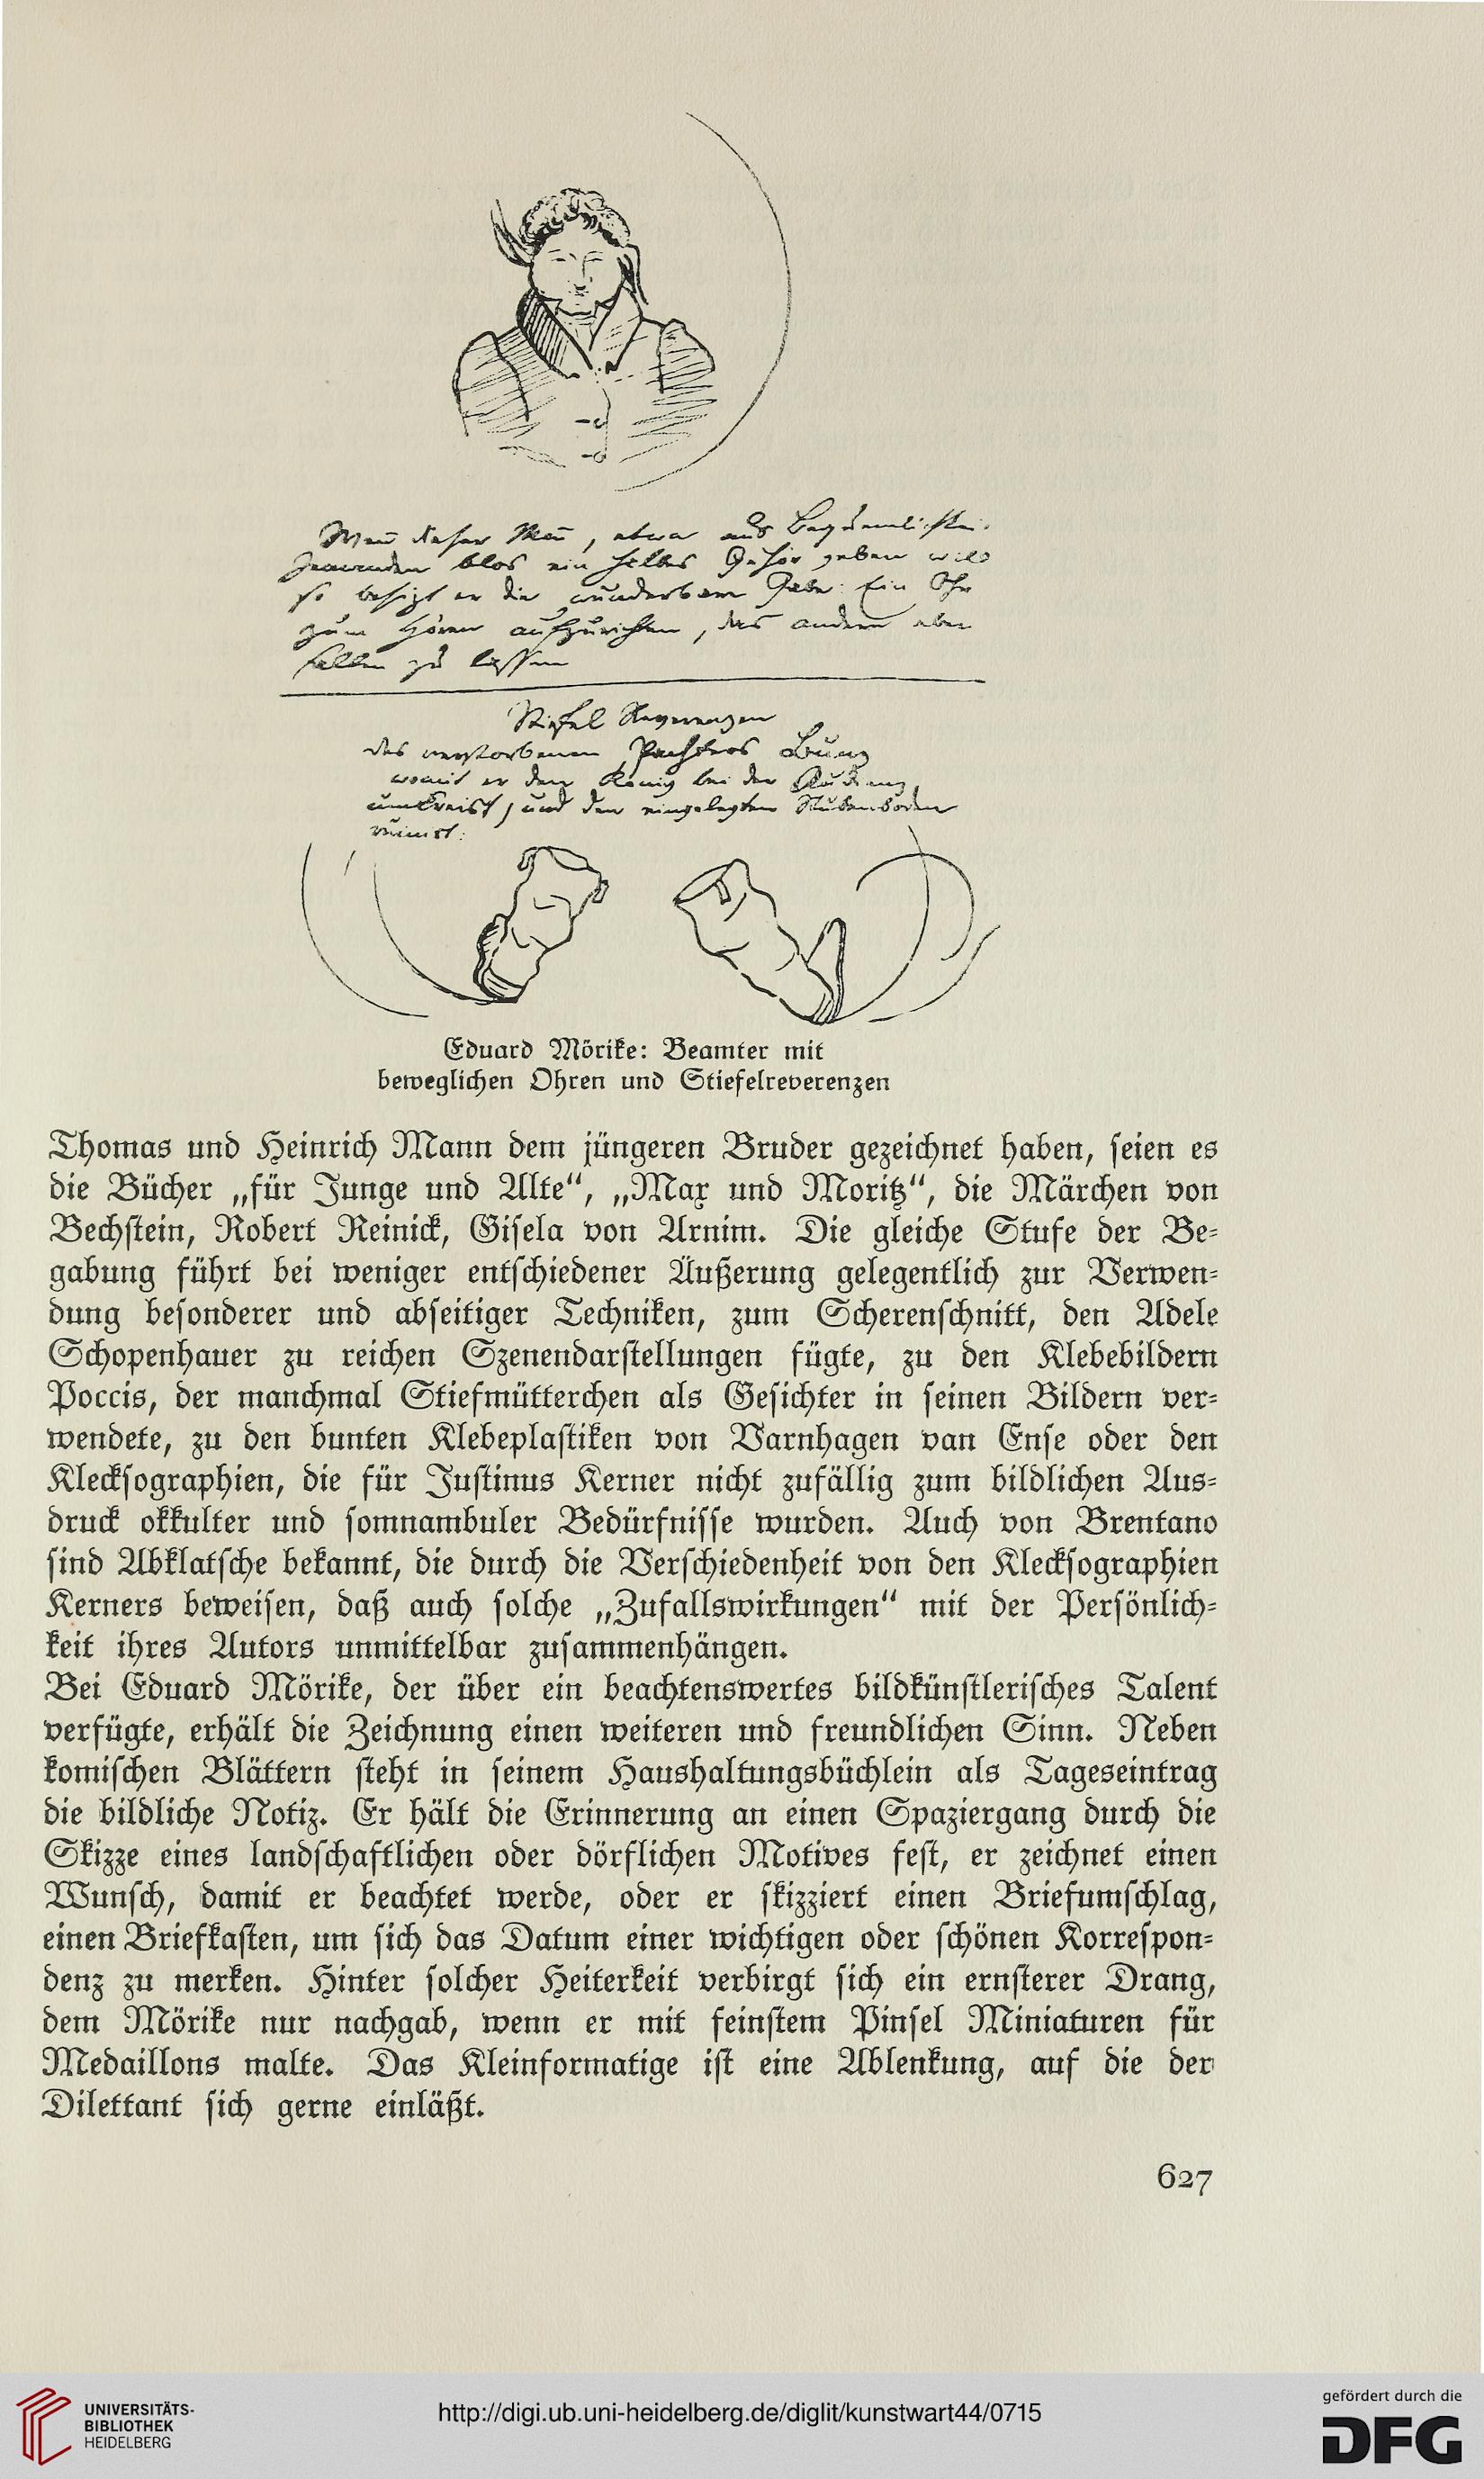 Wenn dieser Mann, etwa aus Bequemlichkeit,
blos ein halbes Gehör geben will
so besizt er die wunderbare Gabe: Ein Ohr
zum Hören aufzurichten, das andere aber
fallen zu lassen
Stiefel Reverenzen
des verstorbenen
womit er den König bei der Audienz
umkreist, und den eingelegten Stubenboden
ruinirt.
Eduard Mörike: Beamter mit
beweglichen Ohren und Stiefelreverenzen
Thomas und Heinrich Mann dem jüngeren Bruder gezeichnet haben, seien es
die Bücher „für Junge und Alte“, „Max und Moritz“, die Märchen von
Bechstein, Robert Reinick, Gisela von Arnim. Die gleiche Stufe der Be-
gabung führt bei weniger entschiedener Äußerung gelegentlich zur Verwen-
dung besonderer und abseitiger Techniken, zum Scherenschnitt, den Adele
Schopenhauer zu reichen Szenendarstellungen fügte, zu den Klebebildern
Poccis, der manchmal Stiefmütterchen als Gesichter in seinen Bildern ver-
wendete, zu den bunten Klebeplastiken von Varnhagen van Ense oder den
Klecksographien, die für Justinus Kerner nicht zufällig zum bildlichen Aus-
druck okkulter und somnambuler Bedürfnisse wurden. Auch von Brentano
sind Abklatsche bekannt, die durch die Verschiedenheit von den Klecksographien
Kerners beweisen, daß auch solche „Zufallswirkungen“ mit der Persönlich-
keit ihres Autors unmittelbar zusammenhängen.
Bei Eduard Mörike, der über ein beachtenswertes bildkünstlerisches Talent
verfügte, erhält die Zeichnung einen weiteren und freundlichen Sinn. Neben
komischen Blättern steht in seinem Haushaltungsbüchlein als Tageseintrag
die bildliche Notiz. Er hält die Erinnerung an einen Spaziergang durch die
Skizze eines landschaftlichen oder dörflichen Motives fest, er zeichnet einen
Wunsch, damit er beachtet werde, oder er skizziert einen Briefumschlag,
einen Briefkasten, um sich das Datum einer wichtigen oder schönen Korrespon-
denz zu merken. Hinter solcher Heiterkeit verbirgt sich ein ernsterer Drang,
dem Mörike nur nachgab, wenn er mit feinstem Pinsel Miniaturen für
Medaillons malte. Das Kleinformatige ist eine Ablenkung, auf die der
Dilettant sich gerne einläßt.
627
UNIVERSITÄTS-
BIBLIOTHEK
HEIDELBERG
http://digi.ub.uni-heidelberg.de/diglit/kunstwart44/0715
gefördert durch die
DFG